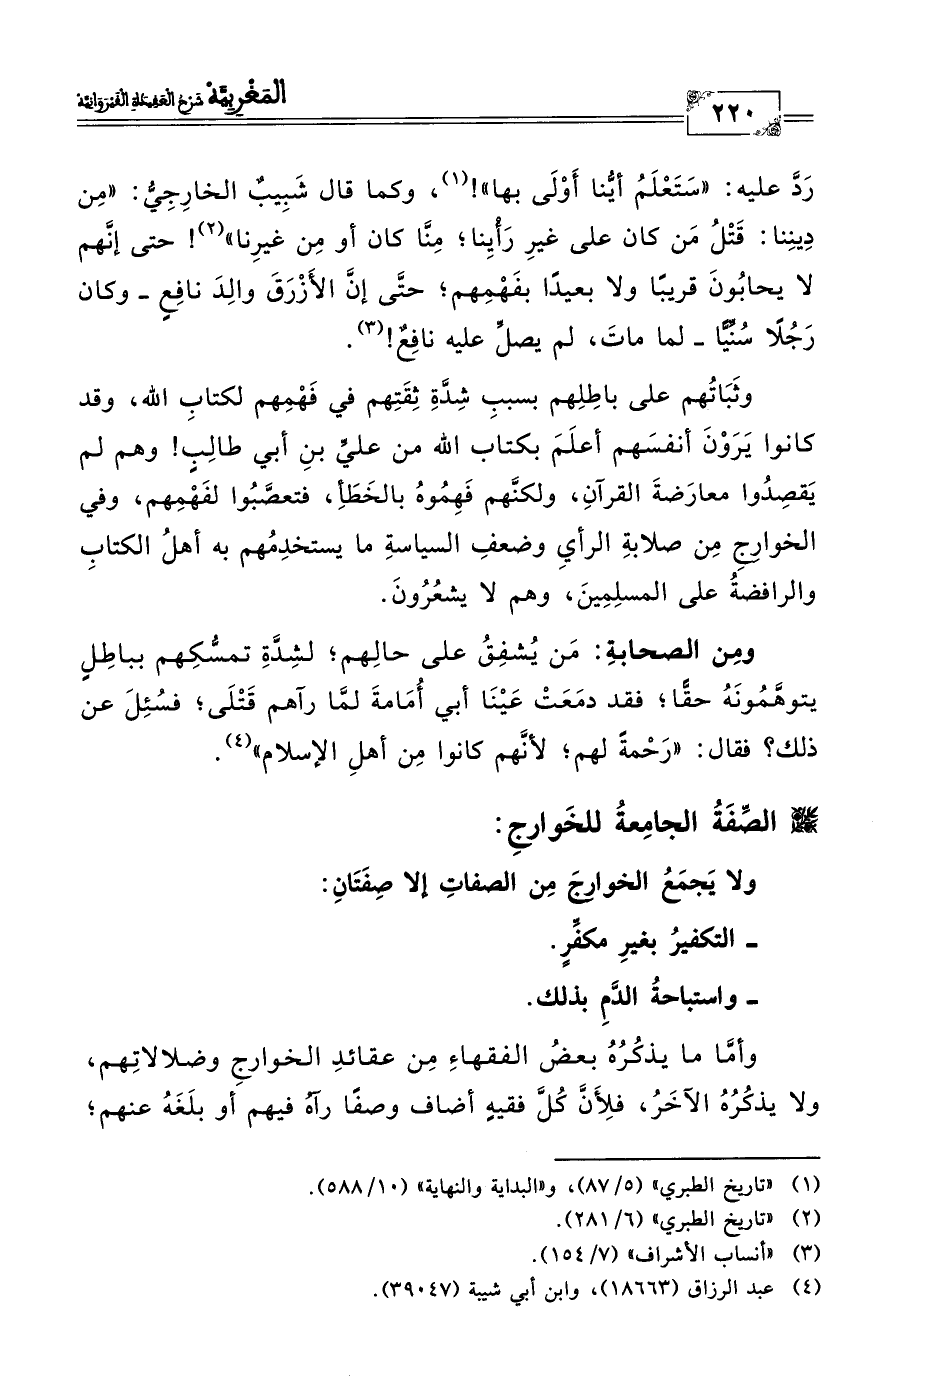 ٢٢٠ المَغْرِبِيَّة شَرْحُ العَقِيدَةِ القَيْرَوَانِيَّة
رَدَّ عليه: «سَتَعْلَمُ أيُّنا أَوْلَى بها»!(١)، وكما قال شَبِيبٌ الخارِجِيُّ: «مِن
دِينِنا: قَتْلُ مَن كان على غيرِ رَأْيِنا؛ مِنَّا كان أو مِن غيرِنا»(٢)! حتى إنَّهم
لا يحابُونَ قريبًا ولا بعيدًا بفَهْمِهم؛ حتَّى إنَّ الأَزْرَقَ والِدَ نافِعٍ ـ وكان
رَجُلًا سُنِّيًّا ـ لما ماتَ، لم يصلِّ عليه نافِعٌ!(٣).
وثَبَاتُهم على باطِلِهم بسببِ شِدَّةِ ثِقَتِهم في فَهْمِهم لكتابِ الله، وقد
كانوا يَرَوْنَ أنفسَهم أعلَمَ بكتاب الله من عليِّ بنِ أبي طالِبٍ! وهم لم
يَقصِدُوا معارَضةَ القرآنِ، ولكنَّهم فَهِمُوهُ بالخَطَأِ، فتعصَّبُوا لفَهْمِهم، وفي
الخوارِجِ مِن صلابةِ الرأيِ وضعفِ السياسةِ ما يستخدِمُهم به أهلُ الكتابِ
والرافضةُ على المسلِمِينَ، وهم لا يشعُرُونَ.
ومِن الصحابةِ: مَن يُشفِقُ على حالِهم؛ لشِدَّةِ تمسُّكِهم بباطِلٍ
يتوهَّمُونَهُ حقًّا؛ فقد دمَعَتْ عَيْنَا أبي أُمَامةَ لمَّا رآهم قَتْلَى؛ فسُئِلَ عن
ذلك؟ فقال: «رَحْمةً لهم؛ لأنَّهم كانوا مِن أهلِ الإسلام»(٤).
الصِّفَةُ الجامِعةُ للخَوارِجِ:
ولا يَجمَعُ الخوارِجَ مِن الصفاتِ إلا صِفَتَانِ:
ـ التكفيرُ بغيرِ مكفِّرٍ.
ـ واستباحةُ الدَّمِ بذلك.
وأمَّا ما يذكُرُهُ بعضُ الفقهاءِ مِن عقائدِ الخوارجِ وضلالاتِهم،
ولا يذكُرُهُ الآخَرُ، فلِأَنَّ كُلَّ فقيهٍ أضاف وصفًا رآهُ فيهم أو بلَغَهُ عنهم؛
(١) «تاريخ الطبري» (٥/ ٨٧)، و«البداية والنهاية» (١٠/ ٥٨٨).
(٢) «تاريخ الطبري» (٦/ ٢٨١).
(٣) «أنساب الأشراف» (٧/ ١٥٤).
(٤) عبد الرزاق (١٨٦٦٣)، وابن أبي شيبة (٣٩٠٤٧).